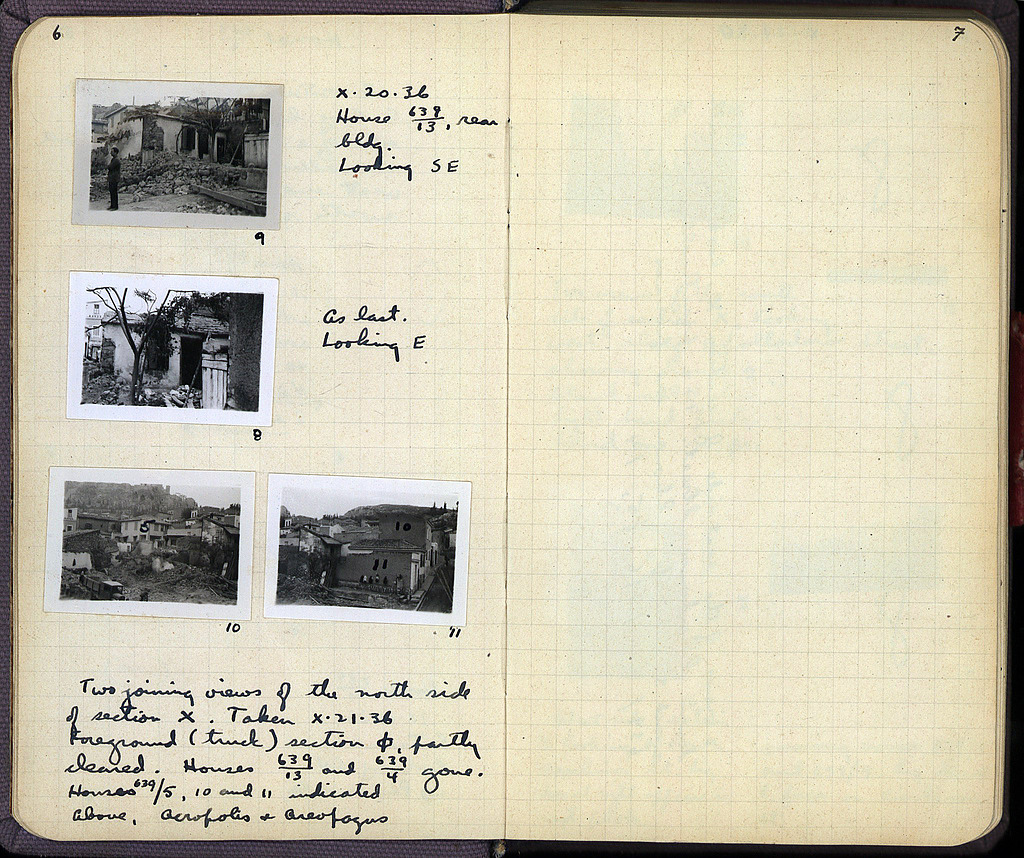 6
x·20·36
House 639/13, rear
bldg.
Looking SE
9
As last.
Looking E
8
5
10
11
10
11
Two joining views of the north side
of section X. Taken x·21·36
Foreground (truck) section Φ, partly
cleared. Houses 639/13 and 639/4 gone.
Houses 639/5, 10 and 11 indicated
above, Acropolis & Areopagus
7